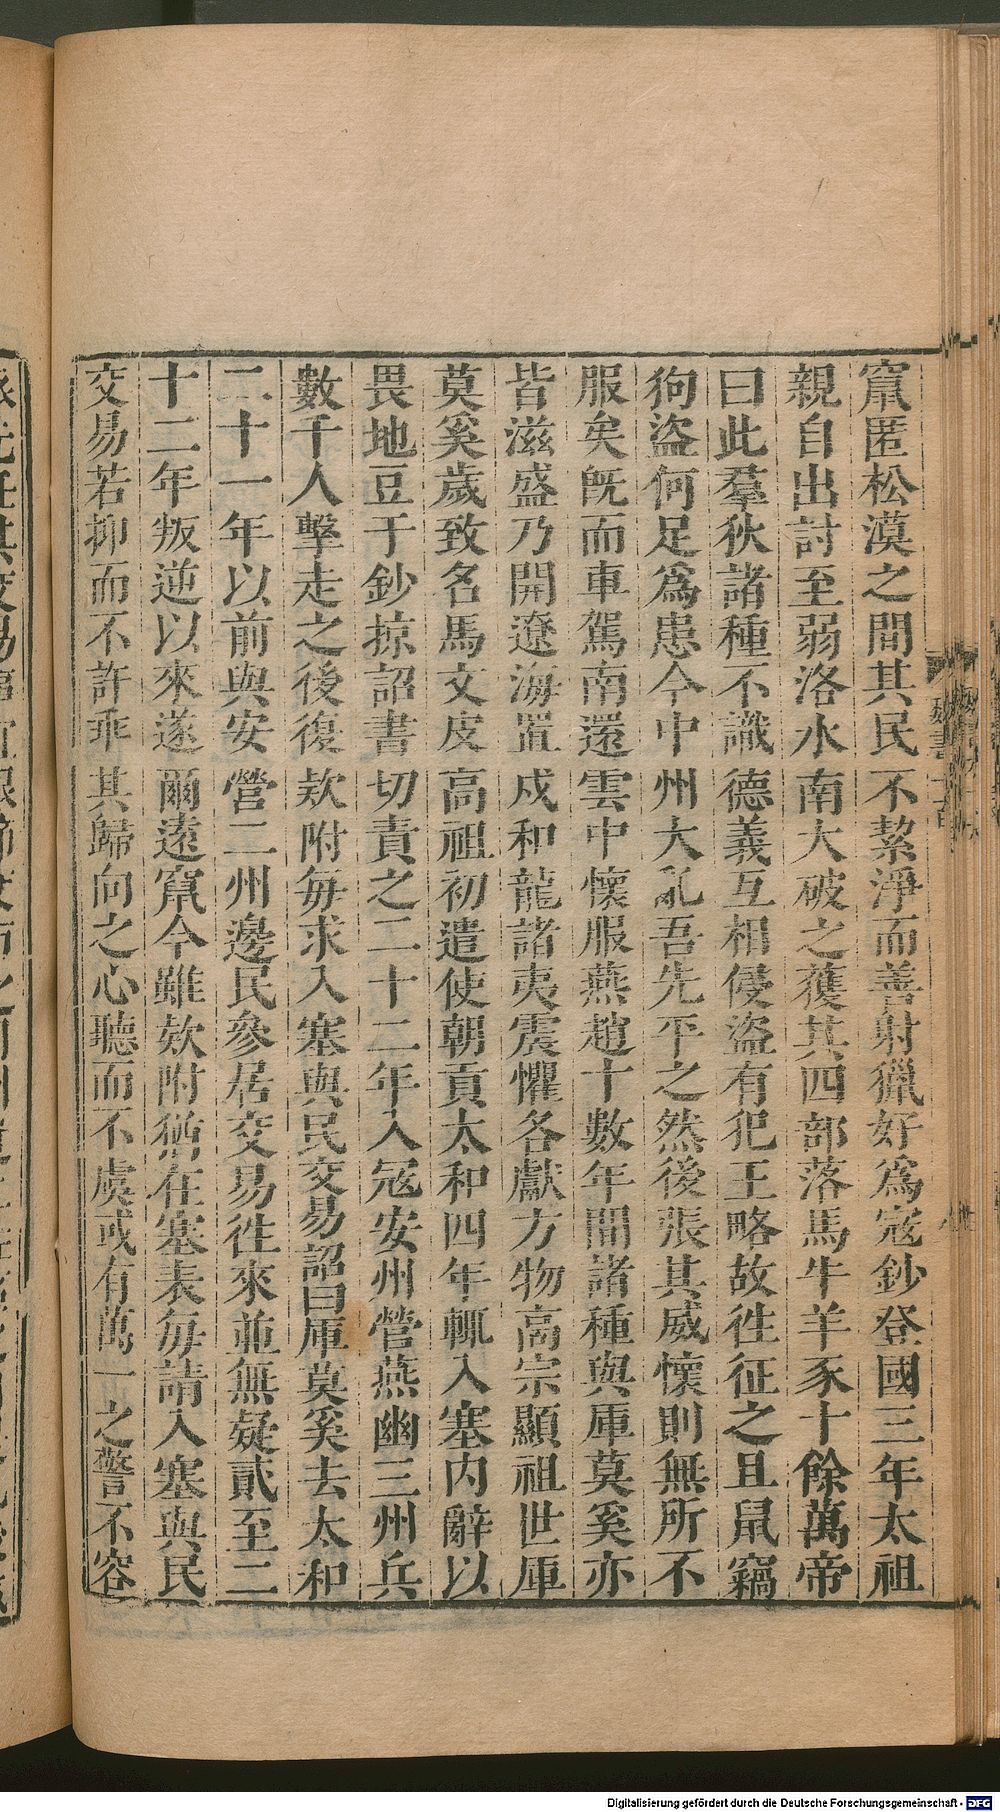 竄匿松漠之間其民不絜淨而善射獵好爲寇鈔登國三年太祖
親自出討至弱洛水南大破之獲其四部落馬牛羊豕十餘萬帝
曰此羣狄諸種不識德義互相侵盜有犯王略故徃征之且鼠竊
狗盜何足爲患今中州大亂吾先平之然後張其威懷則無所不
服矣旣而車駕南還雲中懷服燕趙十數年間諸種與庫莫奚亦
皆滋盛乃開遼海置戍和龍諸夷震懼各獻方物高宗顯祖世庫
莫奚歲致名馬文皮高祖初遣使朝貢太和四年輒入塞內辭以
畏地豆于鈔掠詔書切責之二十二年入寇安州營燕幽三州兵
數千人擊走之後復欵附每求入塞與民交易詔曰庫莫奚去太和
二十一年以前與安營二州邊民參居交易徃來並無疑貳至二
十二年叛逆以來遂爾遠竄今雖欵附猶在塞表每請入塞與民
交易若抑而不許乖其歸向之心聽而不虞或有萬一之警不容
魏書
Digitalisierung gefördert durch die Deutsche Forschungsgemeinschaft - DFG